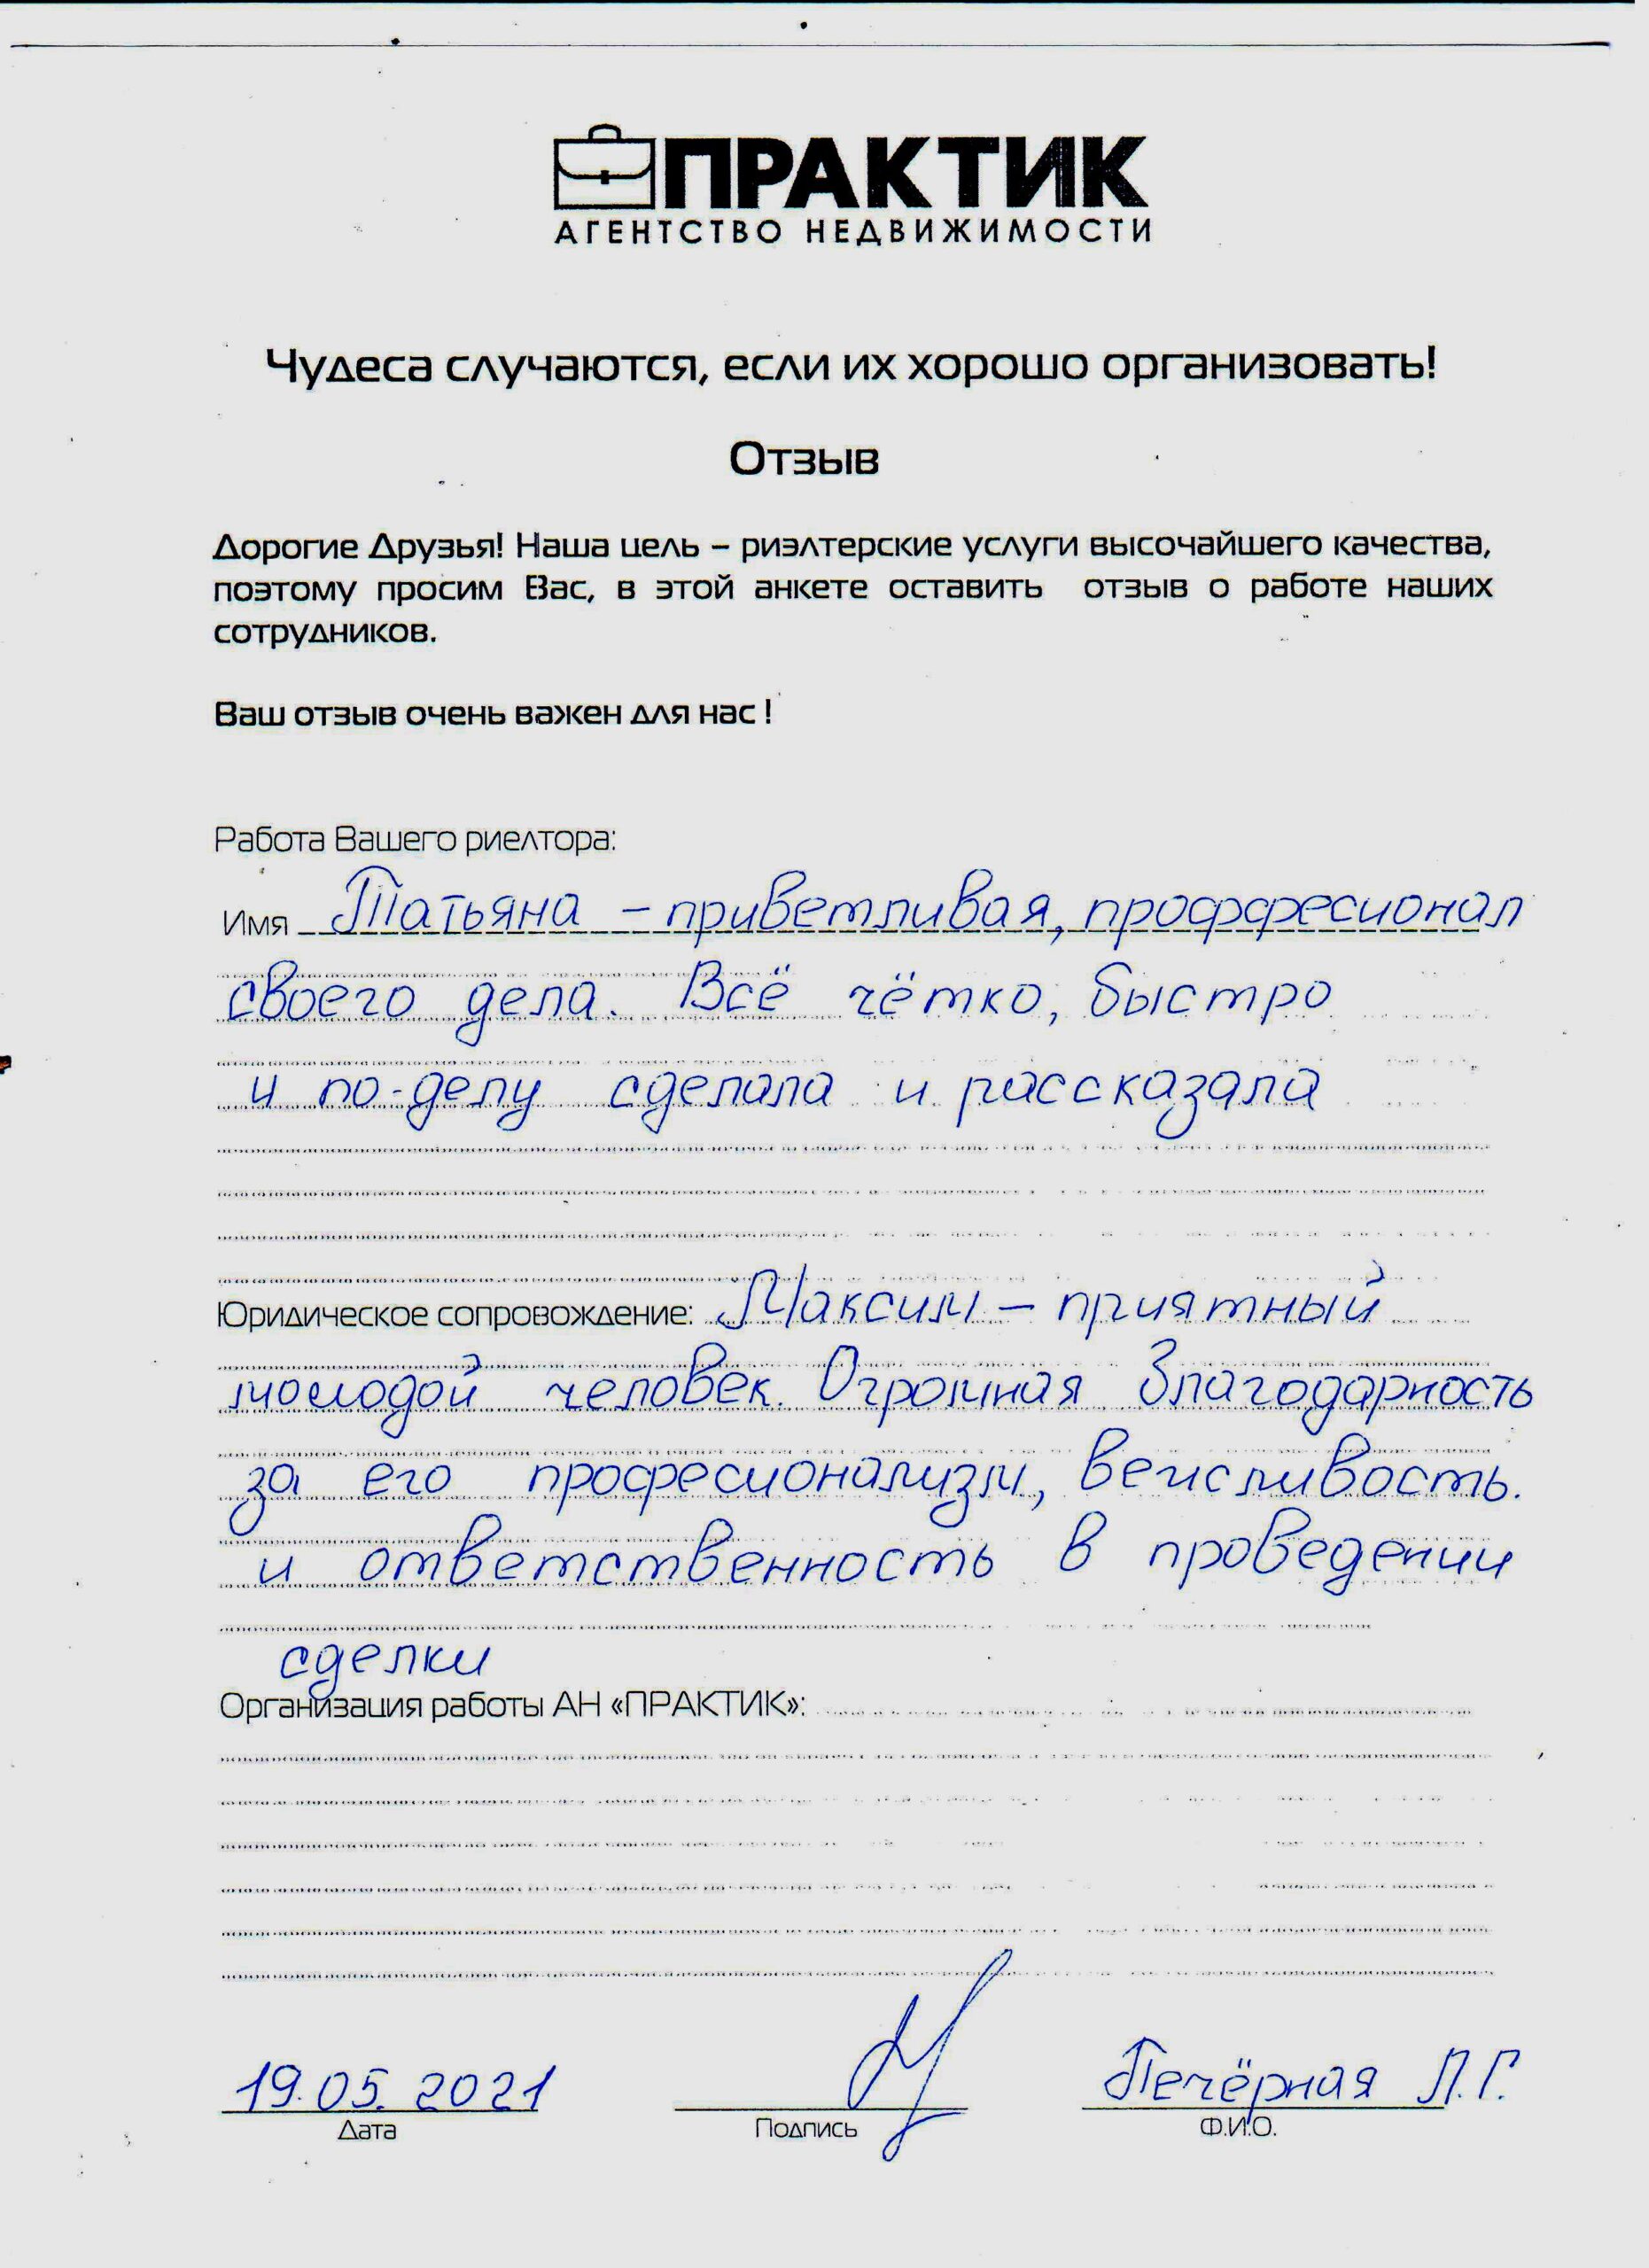 ПРАКТИК
АГЕНТСТВО НЕДВИЖИМОСТИ
Чудеса случаются, если их хорошо организовать!
Отзыв
Дорогие Друзья! Наша цель – риэлтерские услуги высочайшего качества,
поэтому просим Вас, в этой анкете оставить отзыв о работе наших
сотрудников.
Ваш отзыв очень важен для нас !
Работа Вашего риелтора:
Имя Татьяна – приветливая, проффесионал
своего дела. Всё чётко, быстро
и по-делу сделала и рассказала
Юридическое сопровождение: Максим – приятный
молодой человек. Огромная благодарность
за его професионализм, вежливость.
и ответственность в проведении
сделки
Организация работы АН «ПРАКТИК»:
19.05.2021 Печёрная Л.Г.
Дата Подпись Ф.И.О.